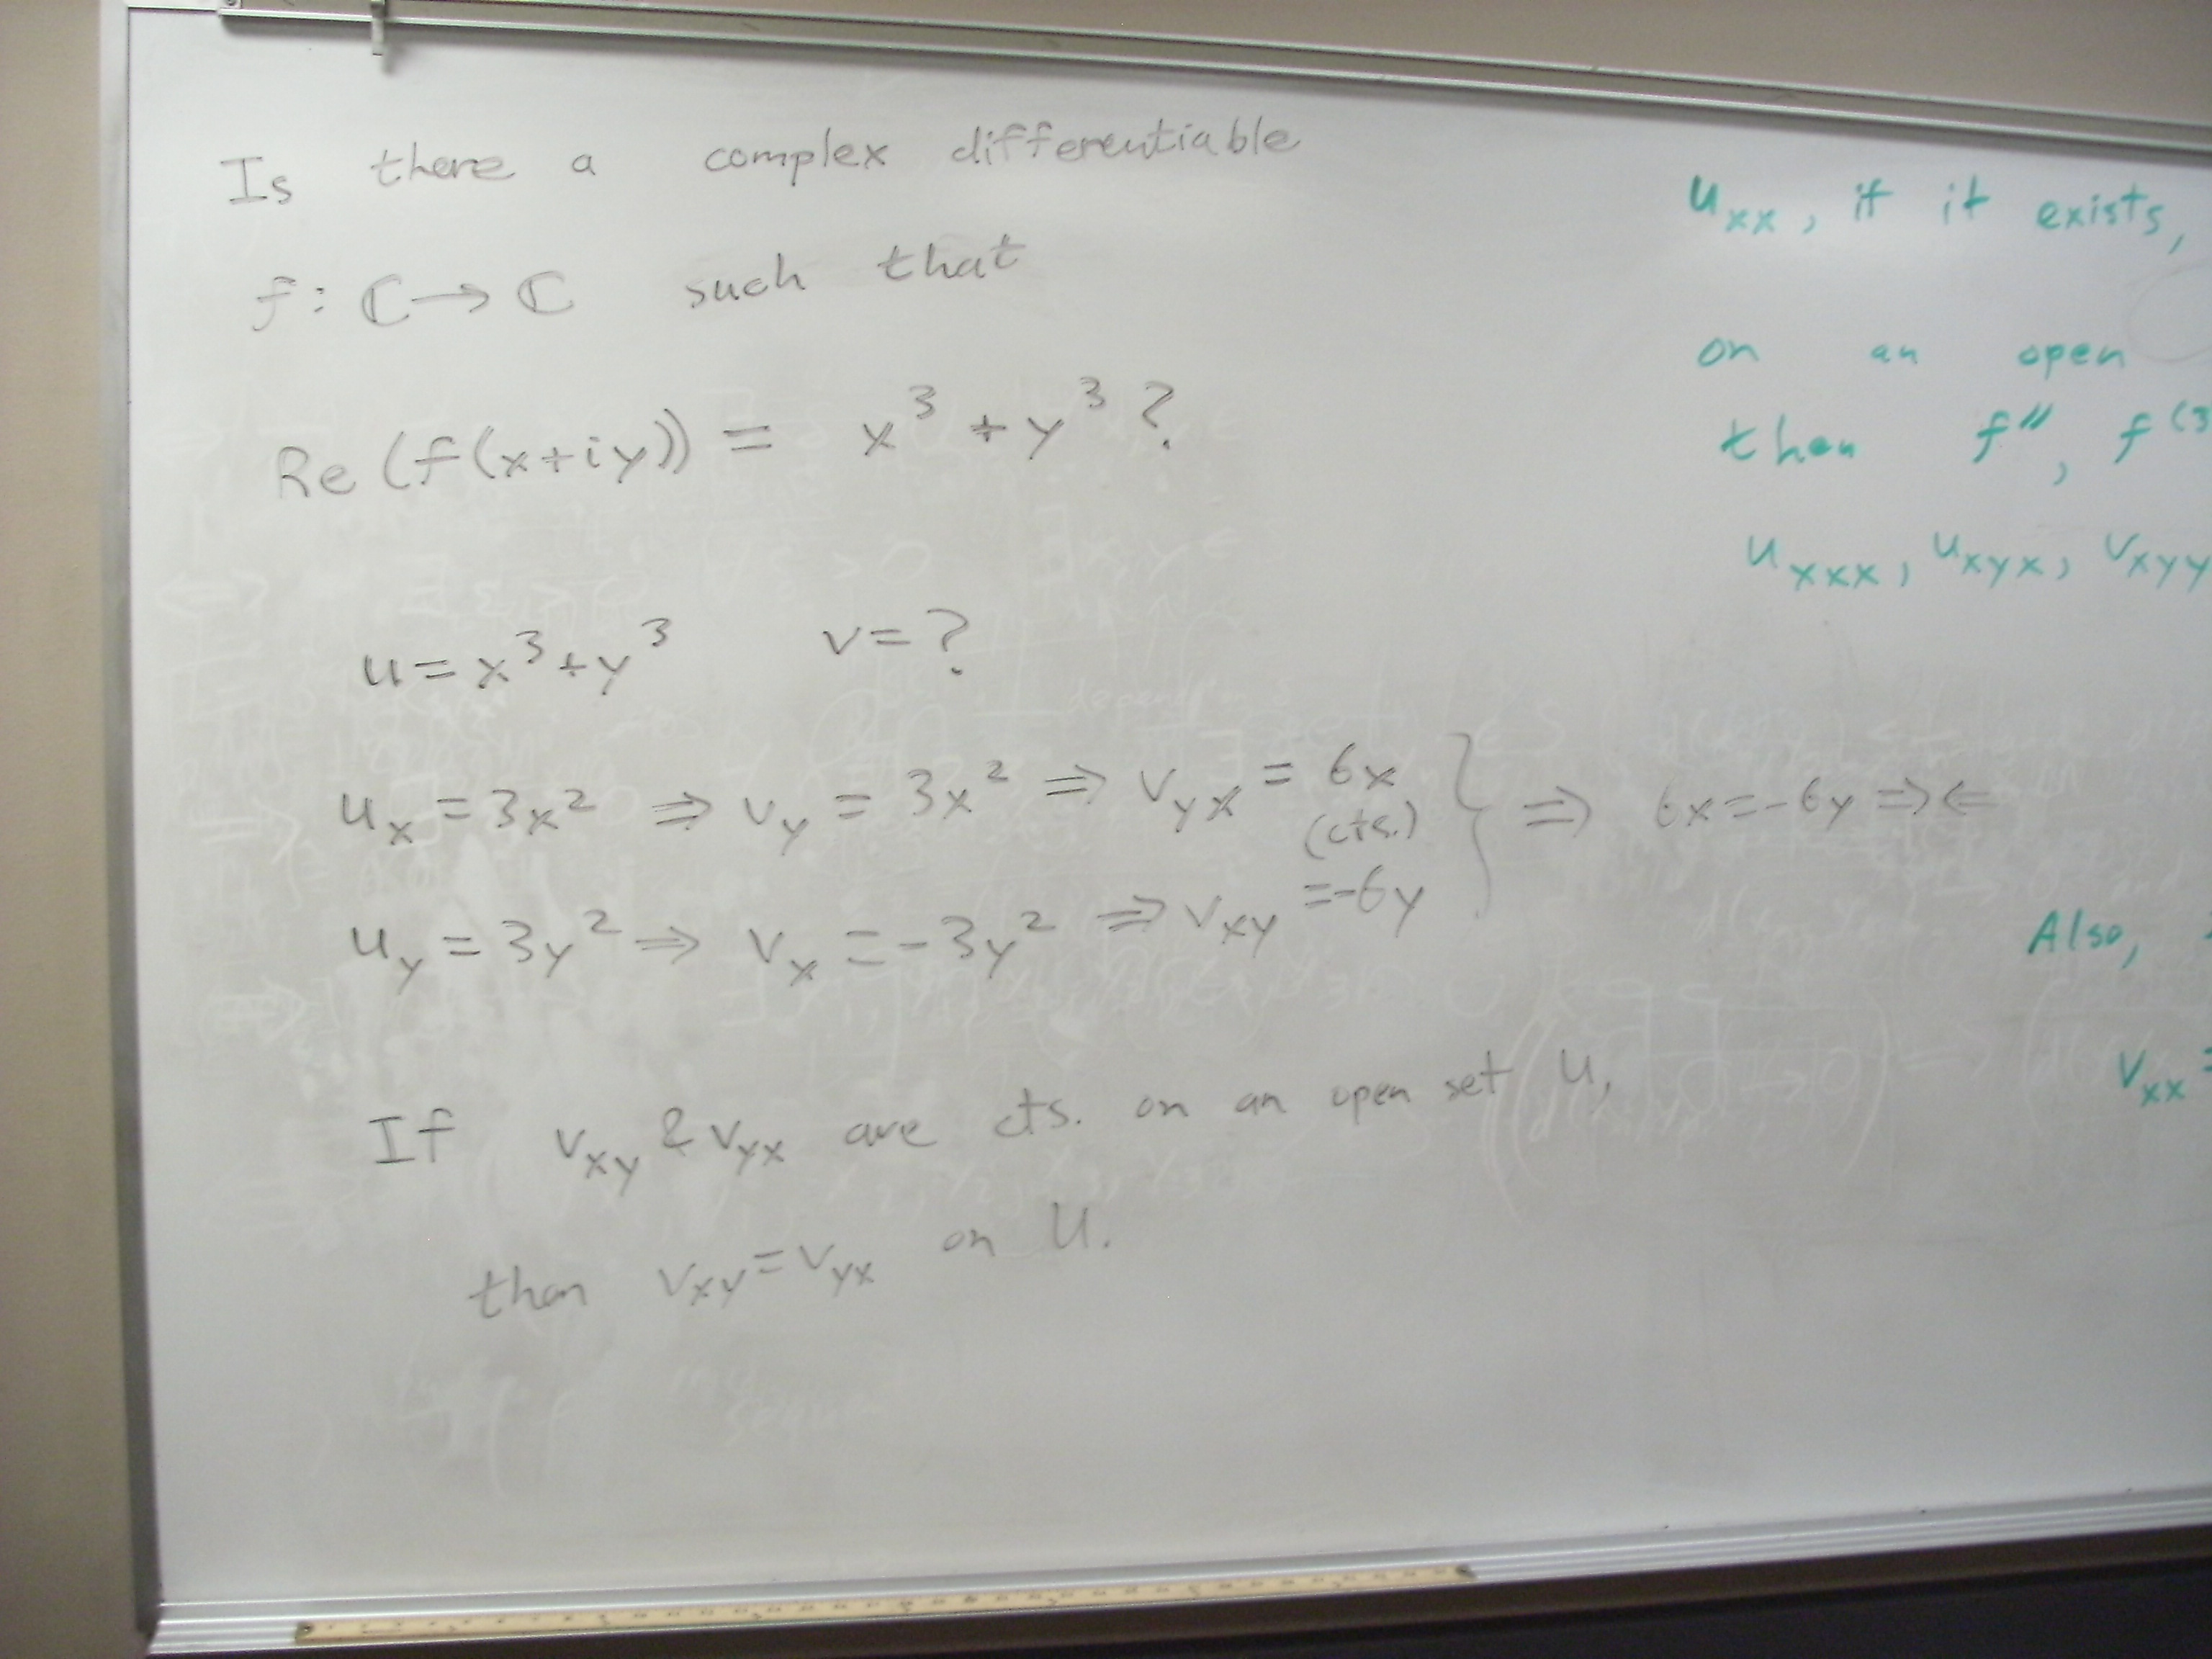 Is there a complex differentiable
f: ℂ → ℂ such that
Re (f(x+iy)) = x³ + y³ ?
u = x³ + y³ v = ?
uₓ = 3x² ⇒ v_y = 3x² ⇒ v_yx = 6x
(cts.)
⇒ 6x = -6y ⇒⇐
u_y = 3y² ⇒ vₓ = -3y² ⇒ v_xy = -6y
If v_xy & v_yx are cts. on an open set U,
then v_xy = v_yx on U.
u_xx, if it exists,
on an open
then f'', f^(3
u_xxx, u_xyx, v_xyy
Also,
v_xx =